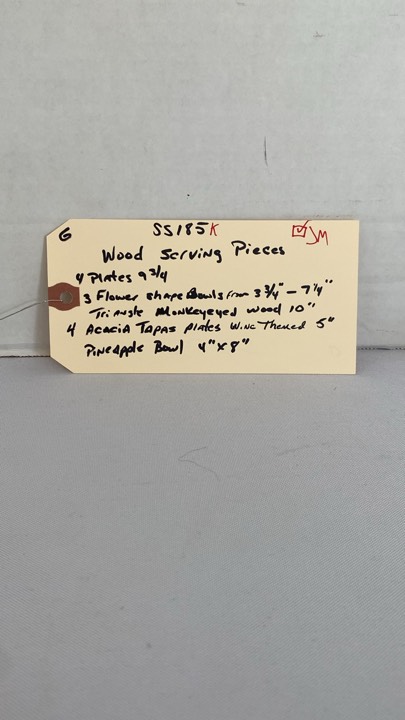 G SS185K ☑ JM
Wood Serving Pieces
4 Plates 9 3/4
3 Flower shape Bowls from 3 3/4" - 7 1/4"
Triangle Monkeyeyed Wood 10"
4 Acacia Tapas plates Wine Themed 5"
Pineapple Bowl 4" x 8"